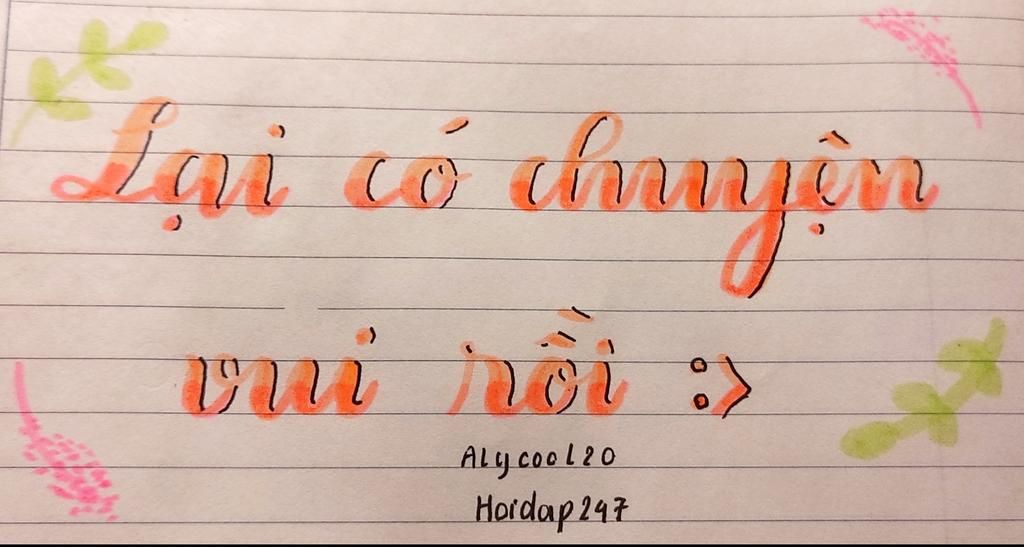 Lại có chuyện
vui rồi :>
Alycool20
Hoidap247